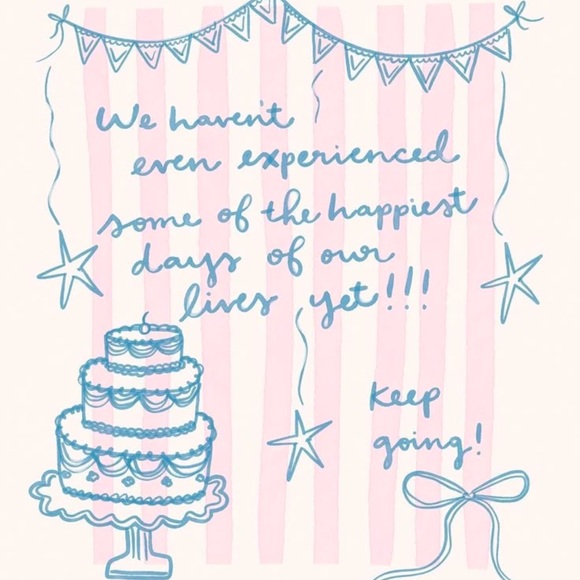 We haven't
even experienced
some of the happiest
days of our
lives yet!!!
keep
going!